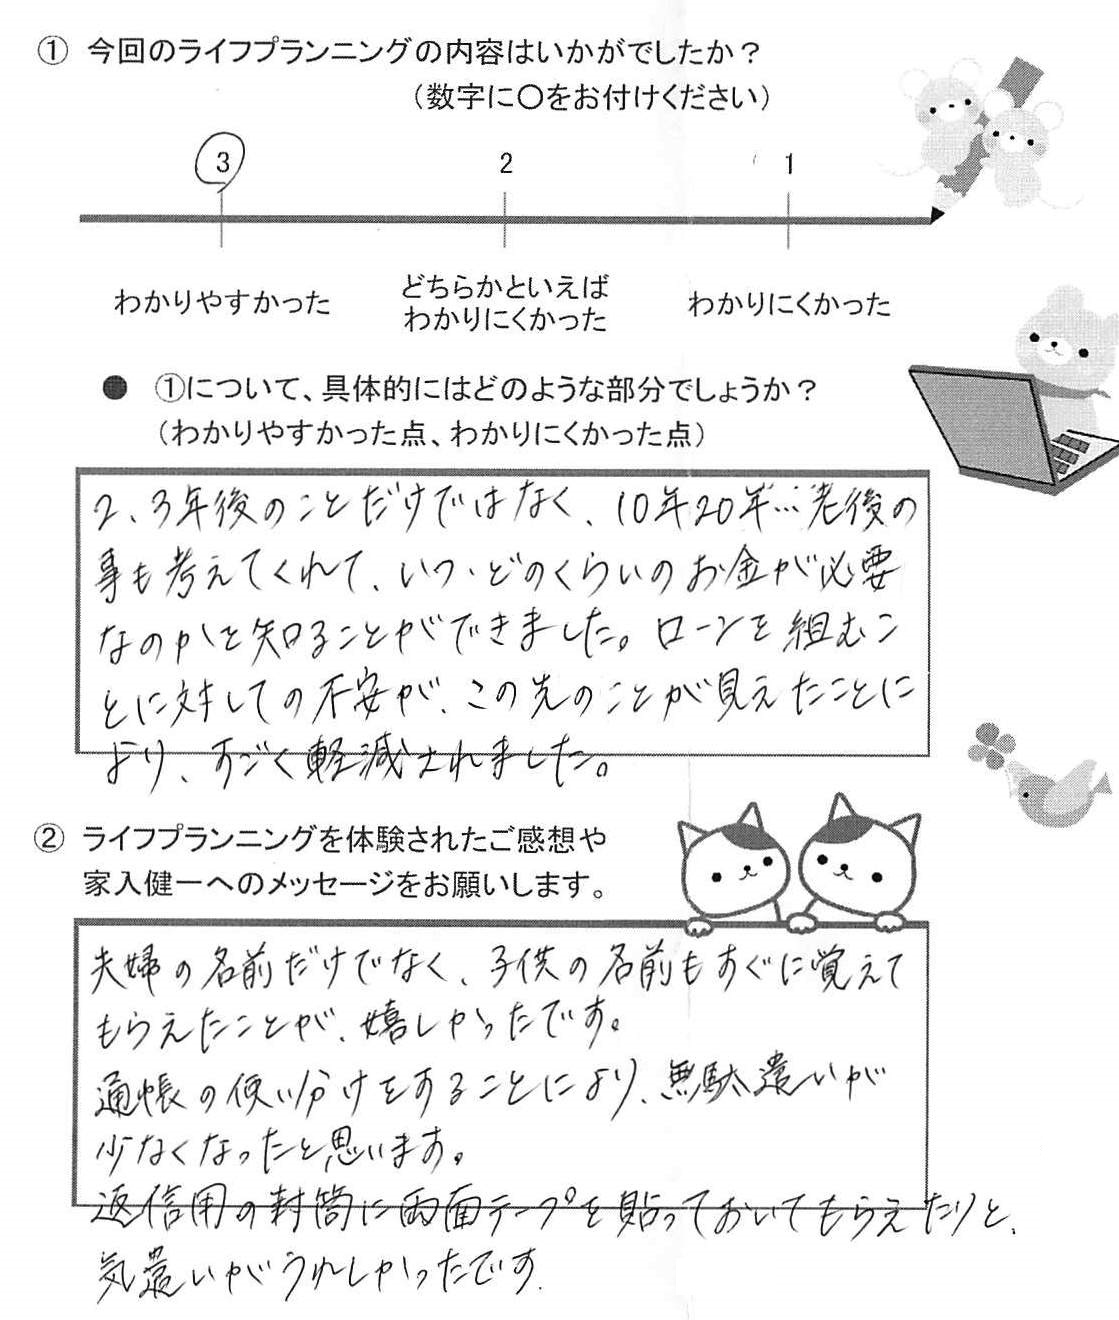 ① 今回のライフプランニングの内容はいかがでしたか？
（数字に〇をお付けください）
3 2 1
わかりやすかった どちらかといえば わかりにくかった
わかりにくかった
● ①について、具体的にはどのような部分でしょうか？
（わかりやすかった点、わかりにくかった点）
2、3年後のことだけではなく、10年20年…老後の
事も考えてくれて、いつ・どのくらいのお金が必要
なのかを知ることができました。ローンを組むこ
とに対しての不安が、この先のことが見えたことに
より、すごく軽減されました。
② ライフプランニングを体験されたご感想や
家入健一へのメッセージをお願いします。
夫婦の名前だけでなく、子供の名前もすぐに覚えて
もらえたことが、嬉しかったです。
通帳の使い分けをすることにより、無駄遣いが
少なくなったと思います。
返信用の封筒に両面テープを貼っておいてもらえたりと、
気遣いがうれしかったです.